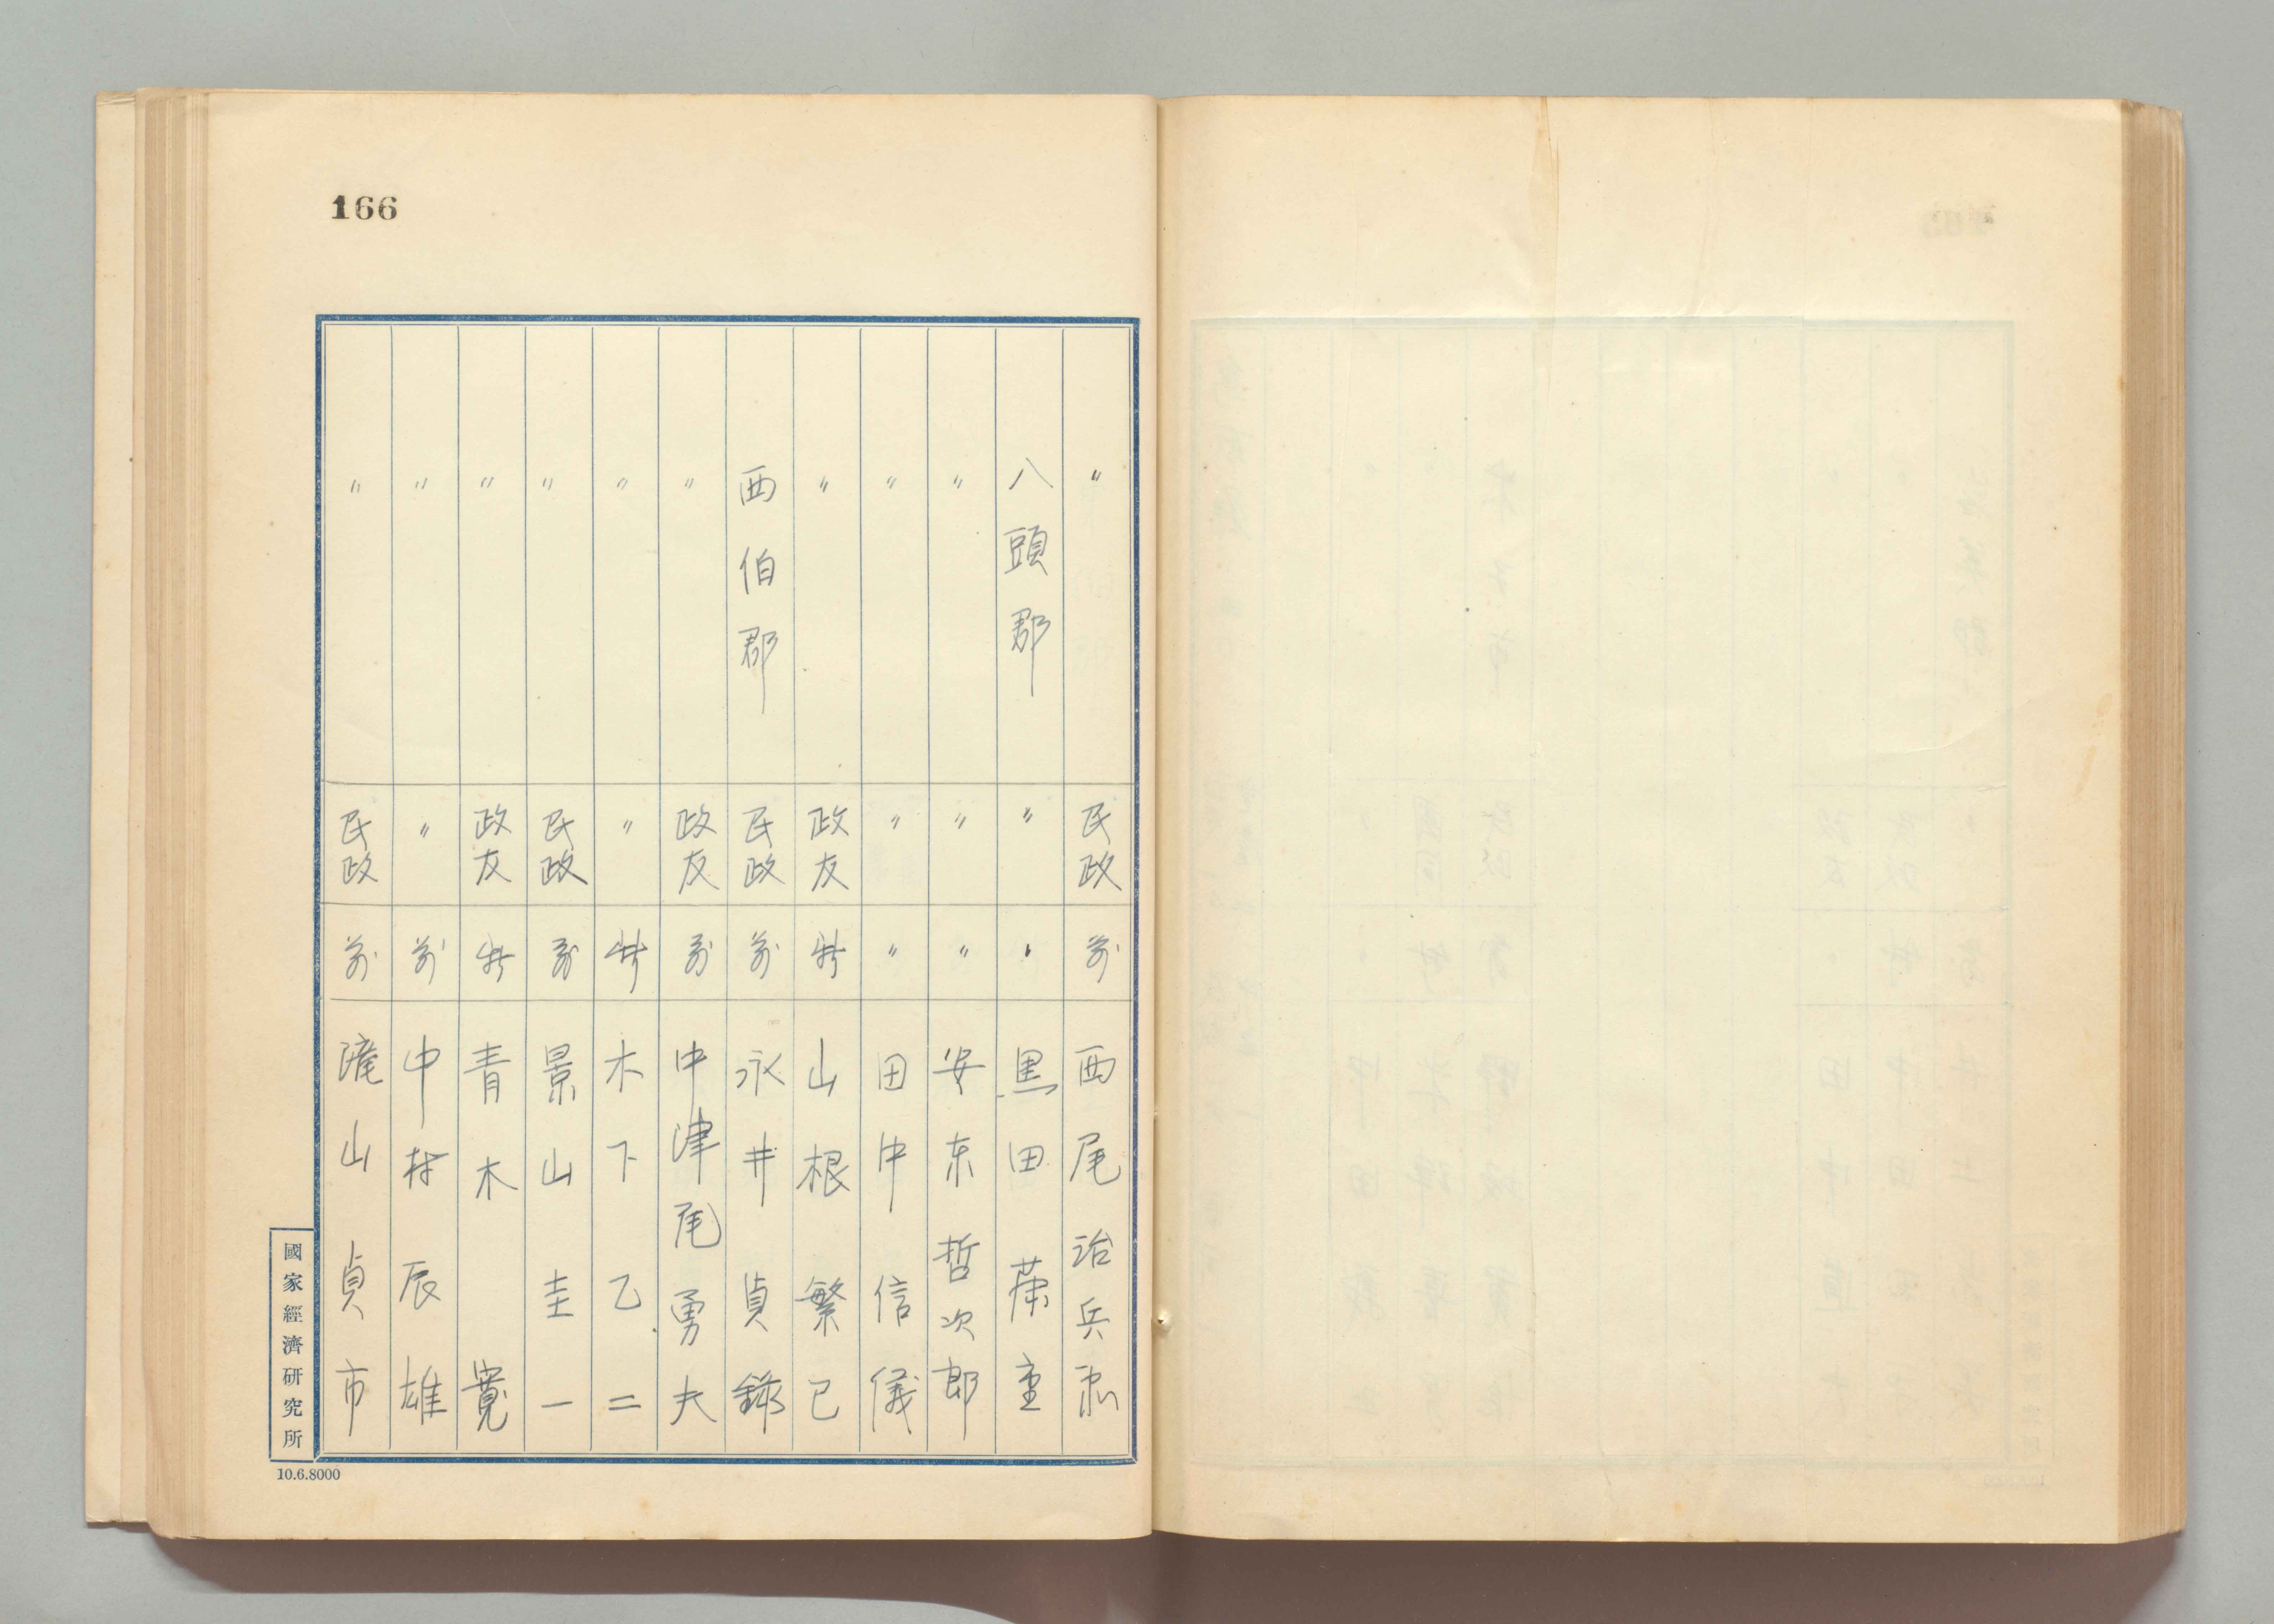 166
〃 民政 前 西尾治兵衛
八頭郡 〃 〃 黒田 重
〃 〃 〃 安東哲次郎
〃 〃 〃 田中信儀
〃 政友 新 山根繁巳
西伯郡 民政 前 永井貞錄
〃 政友 前 中津尾勇夫
〃 〃 新 木下乙二
〃 民政 前 景山圭一
〃 政友 新 青木寛
〃 〃 前 中村辰雄
〃 民政 前 山貞市
國家經濟研究所
10.6.8000